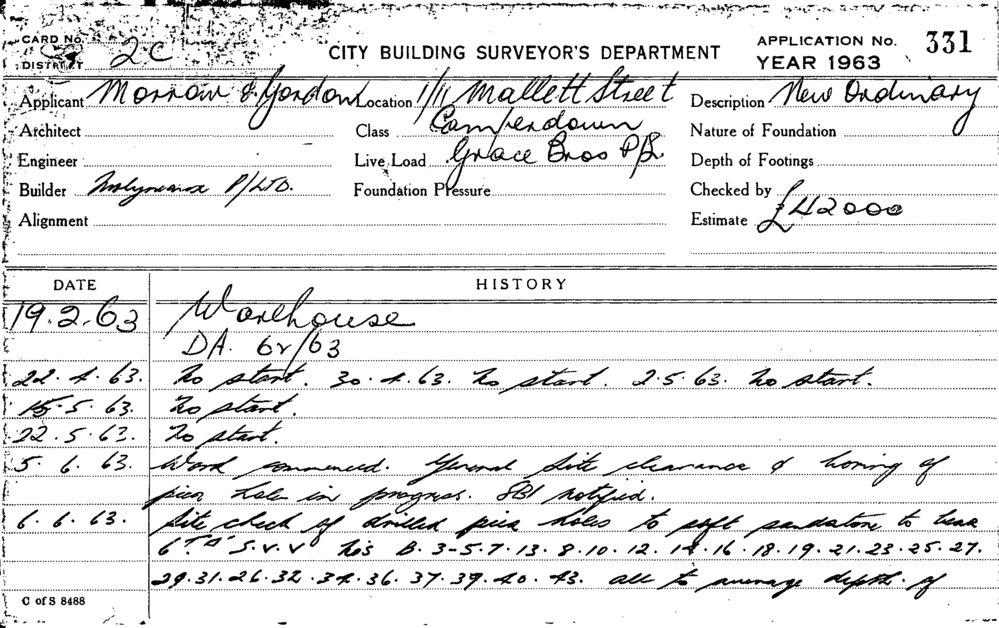 CARD No.
DISTRICT 2C
CITY BUILDING SURVEYOR'S DEPARTMENT
APPLICATION No. 331
YEAR 1963
Applicant Morrow & Gordon Location 1/11 Mallett Street Description New Ordinary
Architect Class Camperdown Nature of Foundation
Engineer Live Load Grace Bros P/L Depth of Footings
Builder P/LTD. Foundation Pressure Checked by
Alignment Estimate £42000
DATE HISTORY
19.2.63 Warehouse
DA. 62/63
22.4.63. No start. 30.4.63. No start. 2.5.63. No start.
15.5.63. No start.
22.5.63. No start.
5.6.63. Work commenced. General site clearance & boring of
pier hole in progress. SBI notified.
6.6.63. Site check of drilled pier holes to soft sandstone to bear
No's B. 3-5.7.13.8.10.12.14.16.18.19.21.23.25.27.
29.31.26.32.34.36.37.39.40.43. all to average depth of
C of S 8488